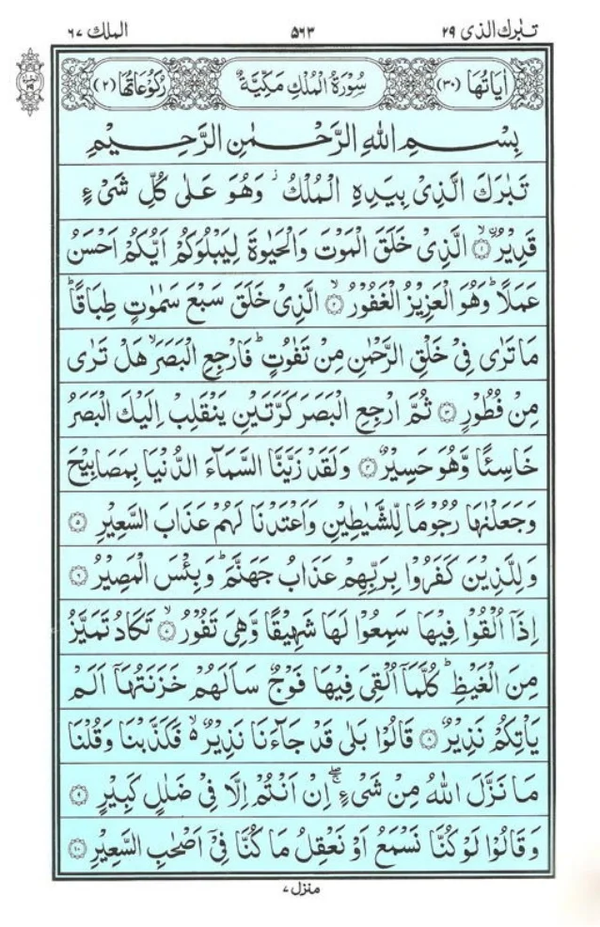 تبٰرك الذی ٢٩ ٥٦٣ الملك ٦٧
اٰيَاتُهَا (٣٠) سُوْرَةُ الْمُلْكِ مَكِّيَّةٌ رُكُوْعَاتُهَا (٢)
بِسْمِ اللّٰهِ الرَّحْمٰنِ الرَّحِيْمِ
تَبٰرَكَ الَّذِىْ بِيَدِهِ الْمُلْكُ ز وَهُوَ عَلٰى كُلِّ شَىْءٍ
قَدِيْرٌ ۙ﴿١﴾ الَّذِىْ خَلَقَ الْمَوْتَ وَالْحَيٰوةَ لِيَبْلُوَكُمْ اَيُّكُمْ اَحْسَنُ
عَمَلًا ؕ وَهُوَ الْعَزِيْزُ الْغَفُوْرُ ۙ﴿٢﴾ الَّذِىْ خَلَقَ سَبْعَ سَمٰوٰتٍ طِبَاقًا ؕ
مَا تَرٰى فِىْ خَلْقِ الرَّحْمٰنِ مِنْ تَفٰوُتٍ ؕ فَارْجِعِ الْبَصَرَ ۙ هَلْ تَرٰى
مِنْ فُطُوْرٍ ﴿٣﴾ ثُمَّ ارْجِعِ الْبَصَرَ كَرَّتَيْنِ يَنْقَلِبْ اِلَيْكَ الْبَصَرُ
خَاسِئًا وَّهُوَ حَسِيْرٌ ﴿٤﴾ وَلَقَدْ زَيَّنَّا السَّمَآءَ الدُّنْيَا بِمَصَابِيْحَ
وَجَعَلْنٰهَا رُجُوْمًا لِّلشَّيٰطِيْنِ وَاَعْتَدْنَا لَهُمْ عَذَابَ السَّعِيْرِ ﴿٥﴾
وَلِلَّذِيْنَ كَفَرُوْا بِرَبِّهِمْ عَذَابُ جَهَنَّمَ ؕ وَبِئْسَ الْمَصِيْرُ ﴿٦﴾
اِذَآ اُلْقُوْا فِيْهَا سَمِعُوْا لَهَا شَهِيْقًا وَّهِىَ تَفُوْرُ ۙ﴿٧﴾ تَكَادُ تَمَيَّزُ
مِنَ الْغَيْظِ ؕ كُلَّمَآ اُلْقِىَ فِيْهَا فَوْجٌ سَاَلَهُمْ خَزَنَتُهَآ اَلَمْ
يَاْتِكُمْ نَذِيْرٌ ﴿٨﴾ قَالُوْا بَلٰى قَدْ جَآءَنَا نَذِيْرٌ ۙ۬ فَكَذَّبْنَا وَقُلْنَا
مَا نَزَّلَ اللّٰهُ مِنْ شَىْءٍ ۚۖ اِنْ اَنْتُمْ اِلَّا فِىْ ضَلٰلٍ كَبِيْرٍ ﴿٩﴾
وَقَالُوْا لَوْ كُنَّا نَسْمَعُ اَوْ نَعْقِلُ مَا كُنَّا فِىْٓ اَصْحٰبِ السَّعِيْرِ ﴿١٠﴾
منزل ٧